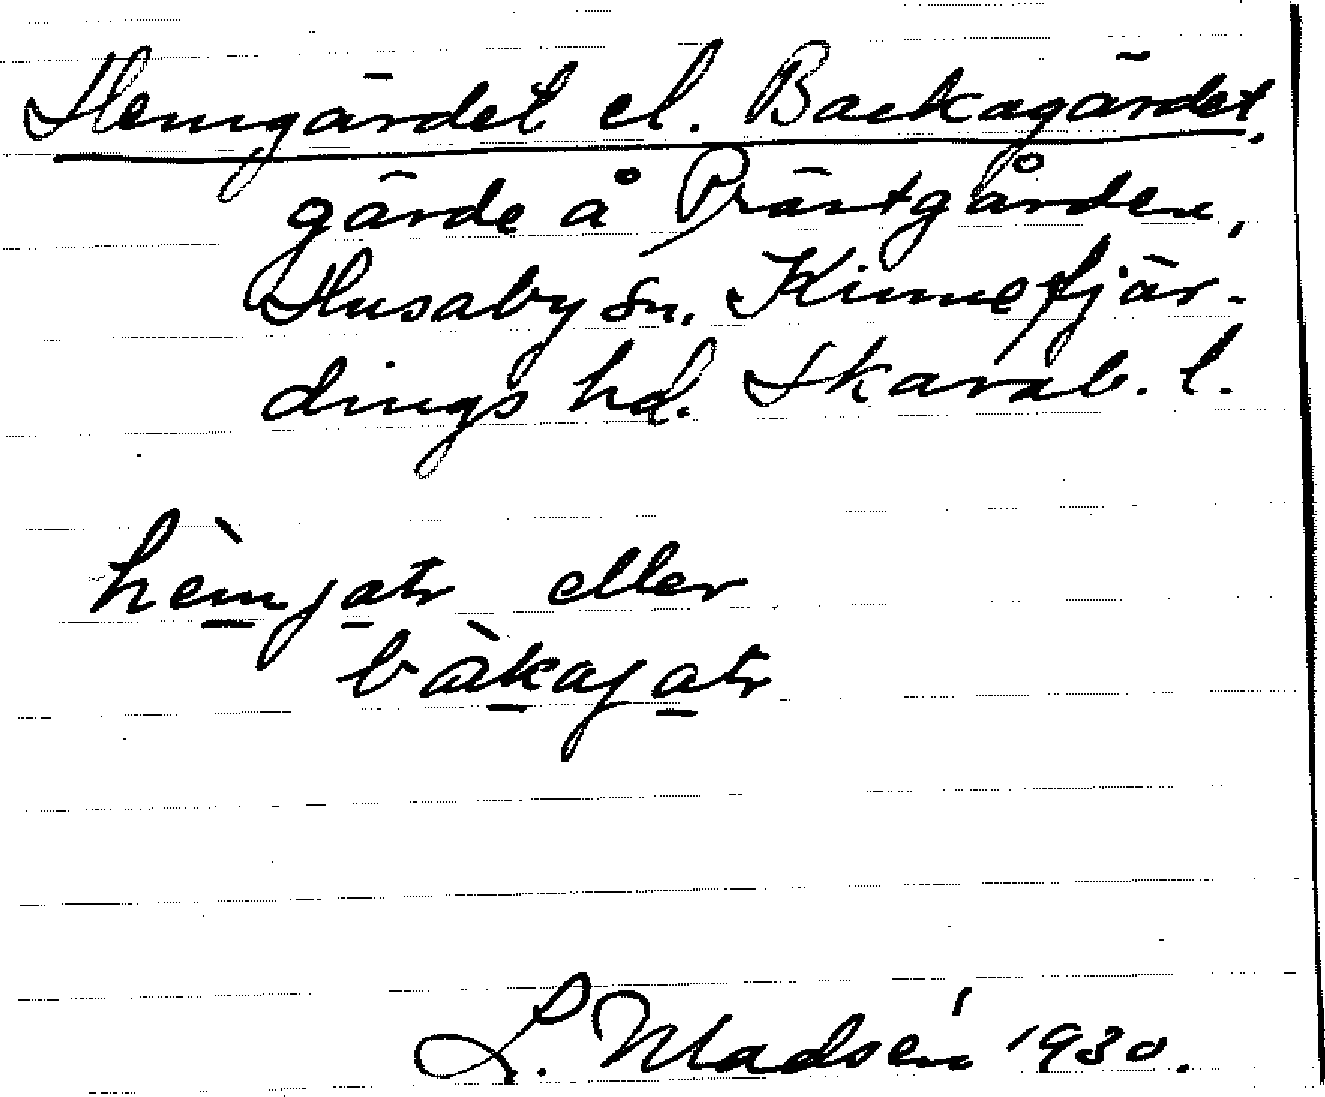 Hemgärdet el. Backagärdet.
gärde å Prästgården,
Husaby sn. Kinnefjär-
dings hd. Skarab. l.
hèmjatr eller
bàkajatr
L. Madsén 1930.